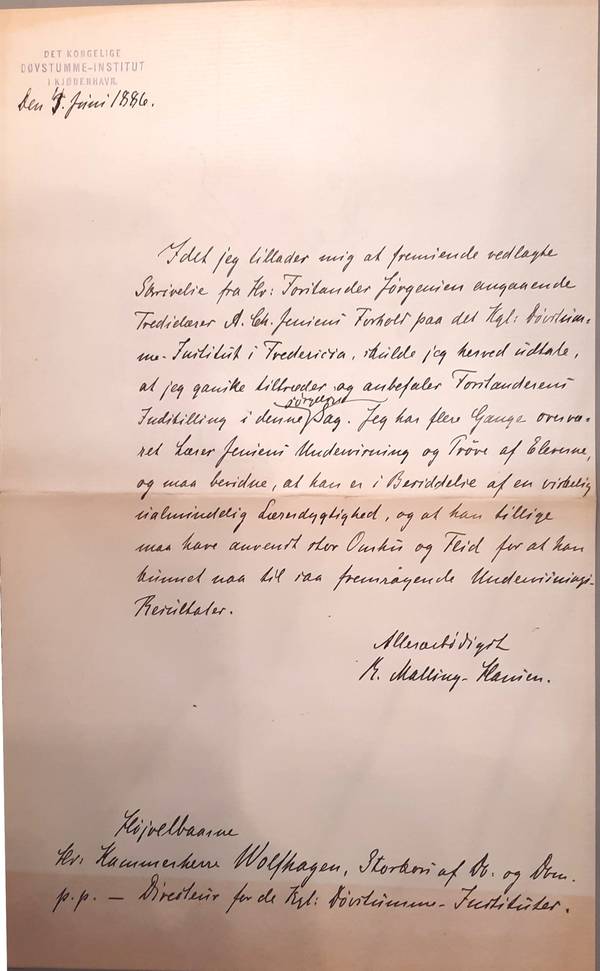 DET KONGELIGE
DØVSTUMME-INSTITUT
I KJØBENHAVN.
Den 5. Juni 1886.
Idet jeg tillader mig at fremsende vedlagte
Skrivelse fra Hr: Forstander Jörgensen angaaende
Tredielærer A. Ch. Jensens Forhold paa det Kgl: Døvstum-
me-Institut i Fredericia, skulde jeg herved udtale,
at jeg ganske tiltræder og anbefaler Forstanderens
Indstilling i denne Sag. Jeg har flere Gange overvæ-
ret Lærer Jensens Undervisning og Prøve af Eleverne,
og maa bevidne, at han er i Besiddelse af en virkelig
ualmindelig Lærerdygtighed, og at han tillige
maa have anvendt stor Omhu og Flid for at han
kunnet naa til saa fremragende Undervisnings-
Resultater.
Allerærbødigst
R. Malling-Hansen.
Højvelbaarne
Hr: Kammerherre Wolfhagen, Storkors af Db. og Dbm.
p.p. — Directeur for de Kgl: Døvstumme-Instituter.